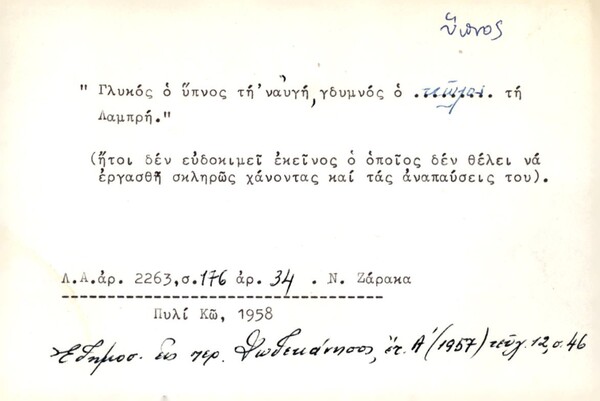 ὕπνος
" Γλυκός ὁ ὕπνος τή'ναυγή, γδυμνός ὁ . . τή
Λαμπρή."
(ἤτοι δέν εὐδοκιμεῖ ἐκεῖνος ὁ ὁποῖος δέν θέλει νά
ἐργασθῆ σκληρῶς χάνοντας καί τάς ἀναπαύσεις του).
Λ.Α.ἀρ. 2263,σ.176 ἀρ. 34 . Ν. Ζάρακα
Πυλί Κῶ, 1958
Ἐδημοσ. εἰς περ. Δωδεκάνησος, ἔτ. Α' (1957) τεῦχ. 12, σ. 46